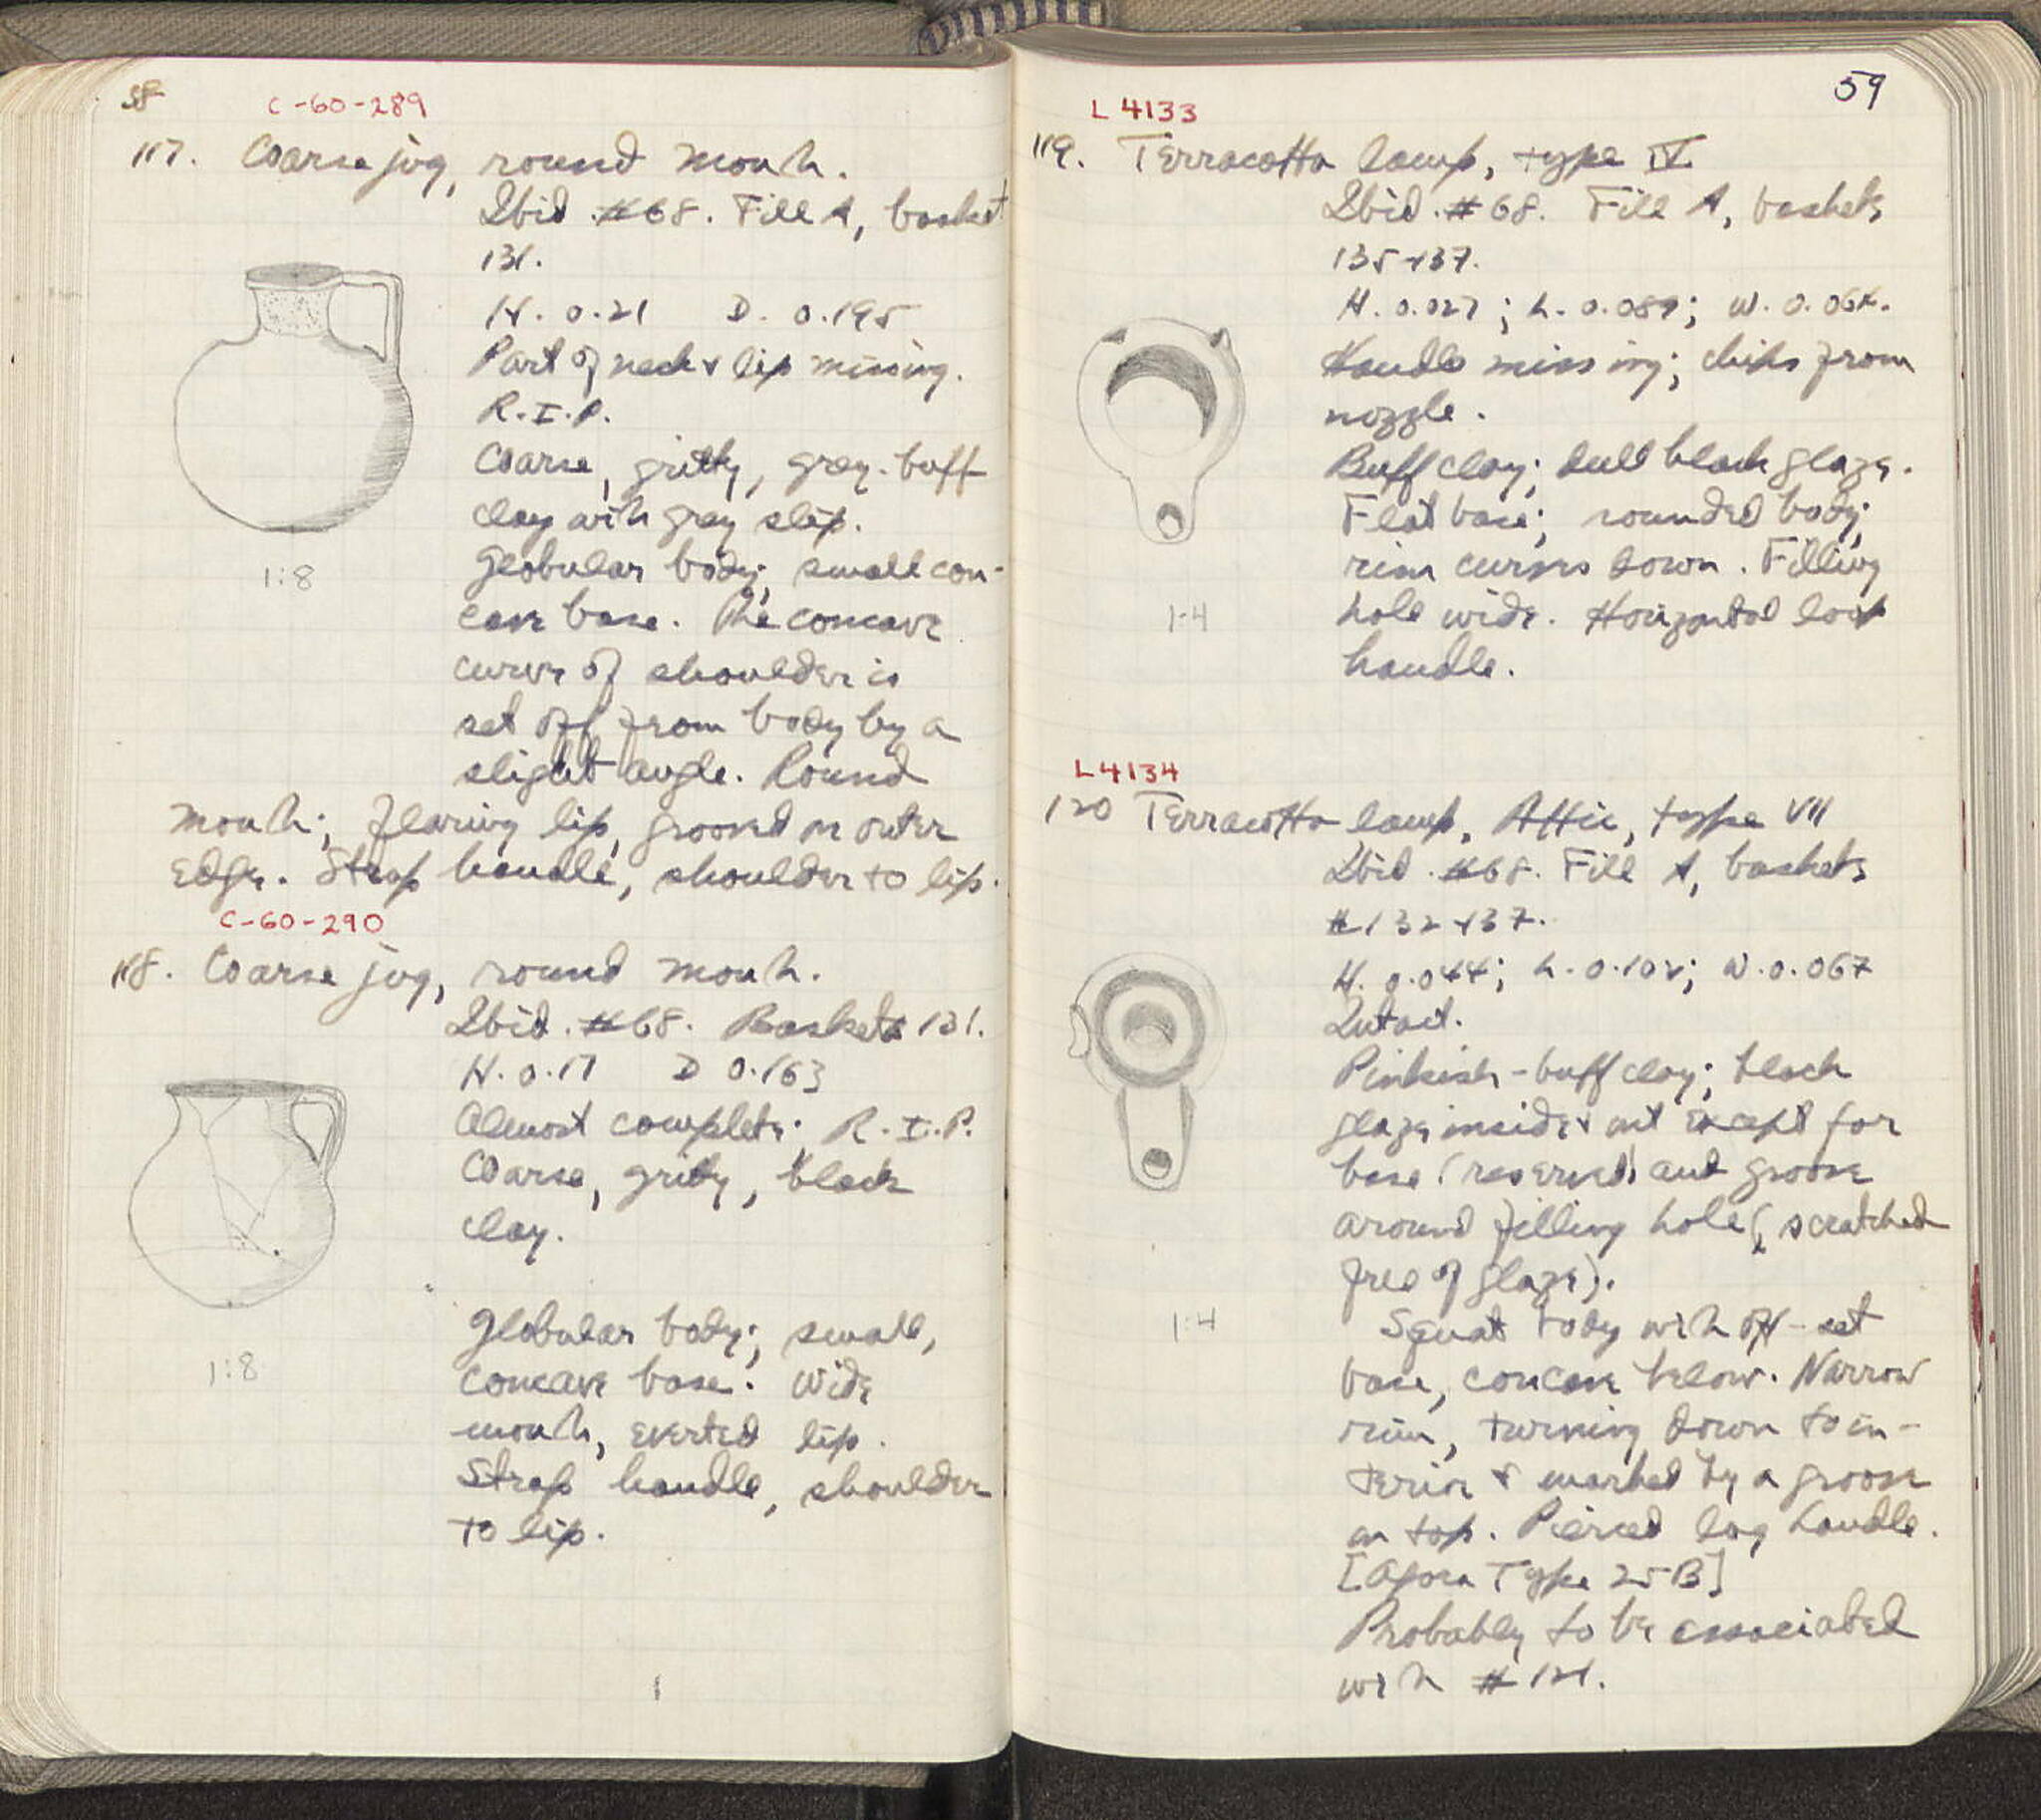 58
C-60-289
117. Coarse jug, round mouth.
Ibid. #68. Fill A, basket
131.
H. 0.21 D. 0.195
Part of neck & lip missing.
R.I.P.
Coarse, gritty, gray-buff
clay with gray slip.
Globular body; small con-
cave base. The concave
curve of shoulder is
set off from body by a
slight angle. Round
mouth; flaring lip, grooved on outer
edge. Strap handle, shoulder to lip.
1:8
C-60-290
118. Coarse jug, round mouth.
Ibid. #68. Basket 131.
H. 0.17 D 0.163
Almost complete; R.I.P.
Coarse, gritty, black
clay.
Globular body; small,
concave base. Wide
mouth, everted lip.
Strap handle, shoulder
to lip.
1:8
59
L 4133
119. Terracotta lamp, type IV
Ibid. #68. Fill A, baskets
135+137.
H. 0.027; L. 0.089; W. 0.064.
Handle missing; chips from
nozzle.
Buff clay; dull black glaze.
Flat base; rounded body;
rim curves down. Filling
hole wide. Horizontal loop
handle.
1:4
L4134
120 Terracotta lamp, Attic, type VII
Ibid. #68. Fill A, baskets
#132+137.
H. 0.044; L. W. 0.067
Intact.
Pinkish-buff clay; black
glaze inside & out except for
base (reserved) and groove
around filling hole (scratched
free of glaze).
Squat body with off-set
base, concave below. Narrow
rim, turning down to in-
terior & marked by a groove
on top. Pierced lug handle.
[Agora Type 25 B]
Probably to be associated
with #121.
1:4